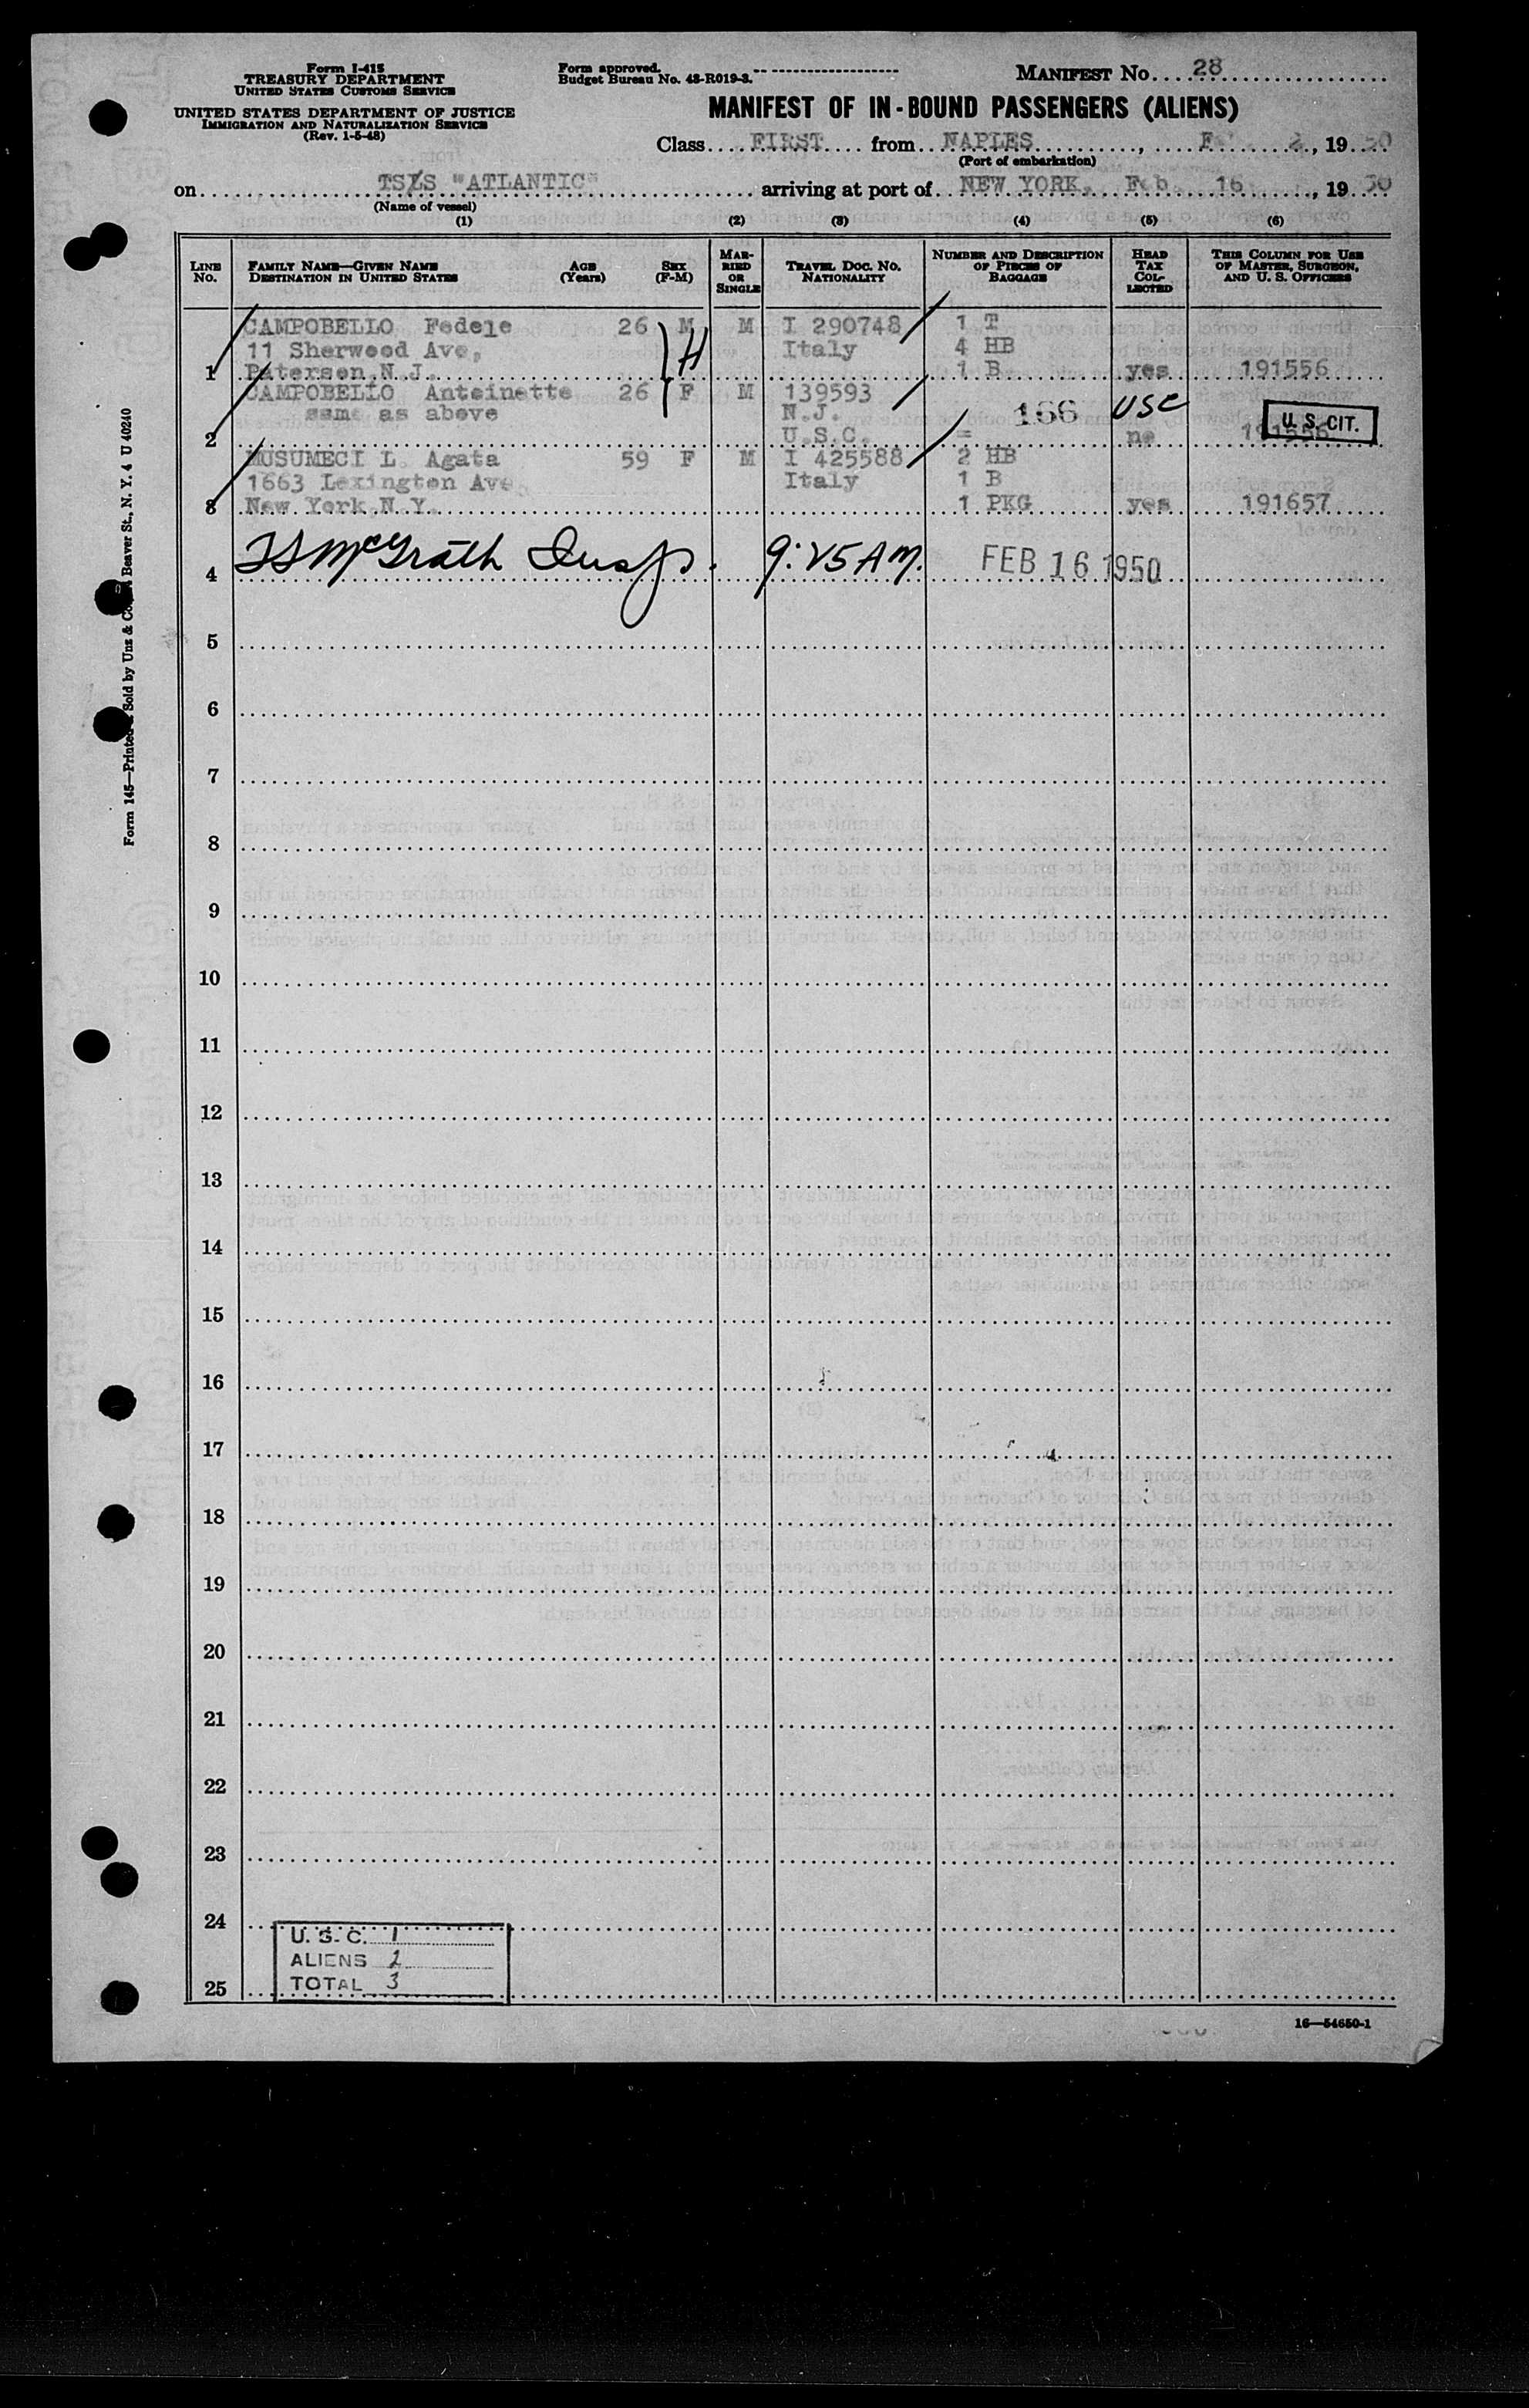 Form I-415
TREASURY DEPARTMENT
UNITED STATES CUSTOMS SERVICE
UNITED STATES DEPARTMENT OF JUSTICE
IMMIGRATION AND NATURALIZATION SERVICE
(Rev. 1-5-48)
Form approved.
Budget Bureau No. 43-R019-3.
MANIFEST No. 28
MANIFEST OF IN-BOUND PASSENGERS (ALIENS)
Class FIRST from NAPLES, 2, 19 50
(Port of embarkation)
on "ATLANTIC" arriving at port of NEW YORK, Feb. 16, 19 50
(Name of vessel)
(1) (2) (3) (4) (5) (6)
LINE No.
FAMILY NAME—GIVEN NAME
DESTINATION IN UNITED STATES
AGE (Years)
SEX (F-M)
MARRIED OR SINGLE
TRAVEL DOC. No.
NATIONALITY
NUMBER AND DESCRIPTION OF PIECES OF BAGGAGE
HEAD TAX COLLECTED
THIS COLUMN FOR USE OF MASTER, SURGEON, AND U. S. OFFICERS
CAMPOBELLO Fedele 26 M M I 290748 1 T
11 Sherwood Ave, H Italy 4 HB
1 Paterson,N.J. 1 B yes 191556
CAMPOBELLO Antoinette 26 F M 139593
same as above N.J. 166 USC U. S. CIT.
2 U.S.C. = no 191556
MUSUMECI L. Agata 59 F M I 425588 2 HB
1663 Lexington Ave Italy 1 B
3 New York,N.Y. 1 PKG yes 191657
4 McGrath Insp. 9:25 AM. FEB 16 1950
5
6
7
8
9
10
11
12
13
14
15
16
17
18
19
20
21
22
23
24
U. S. C. 1
ALIENS 2
25 TOTAL 3
16—54650-1
Form 145—Printed & Sold by Unz & Co., Beaver St., N. Y. 4 U 40240